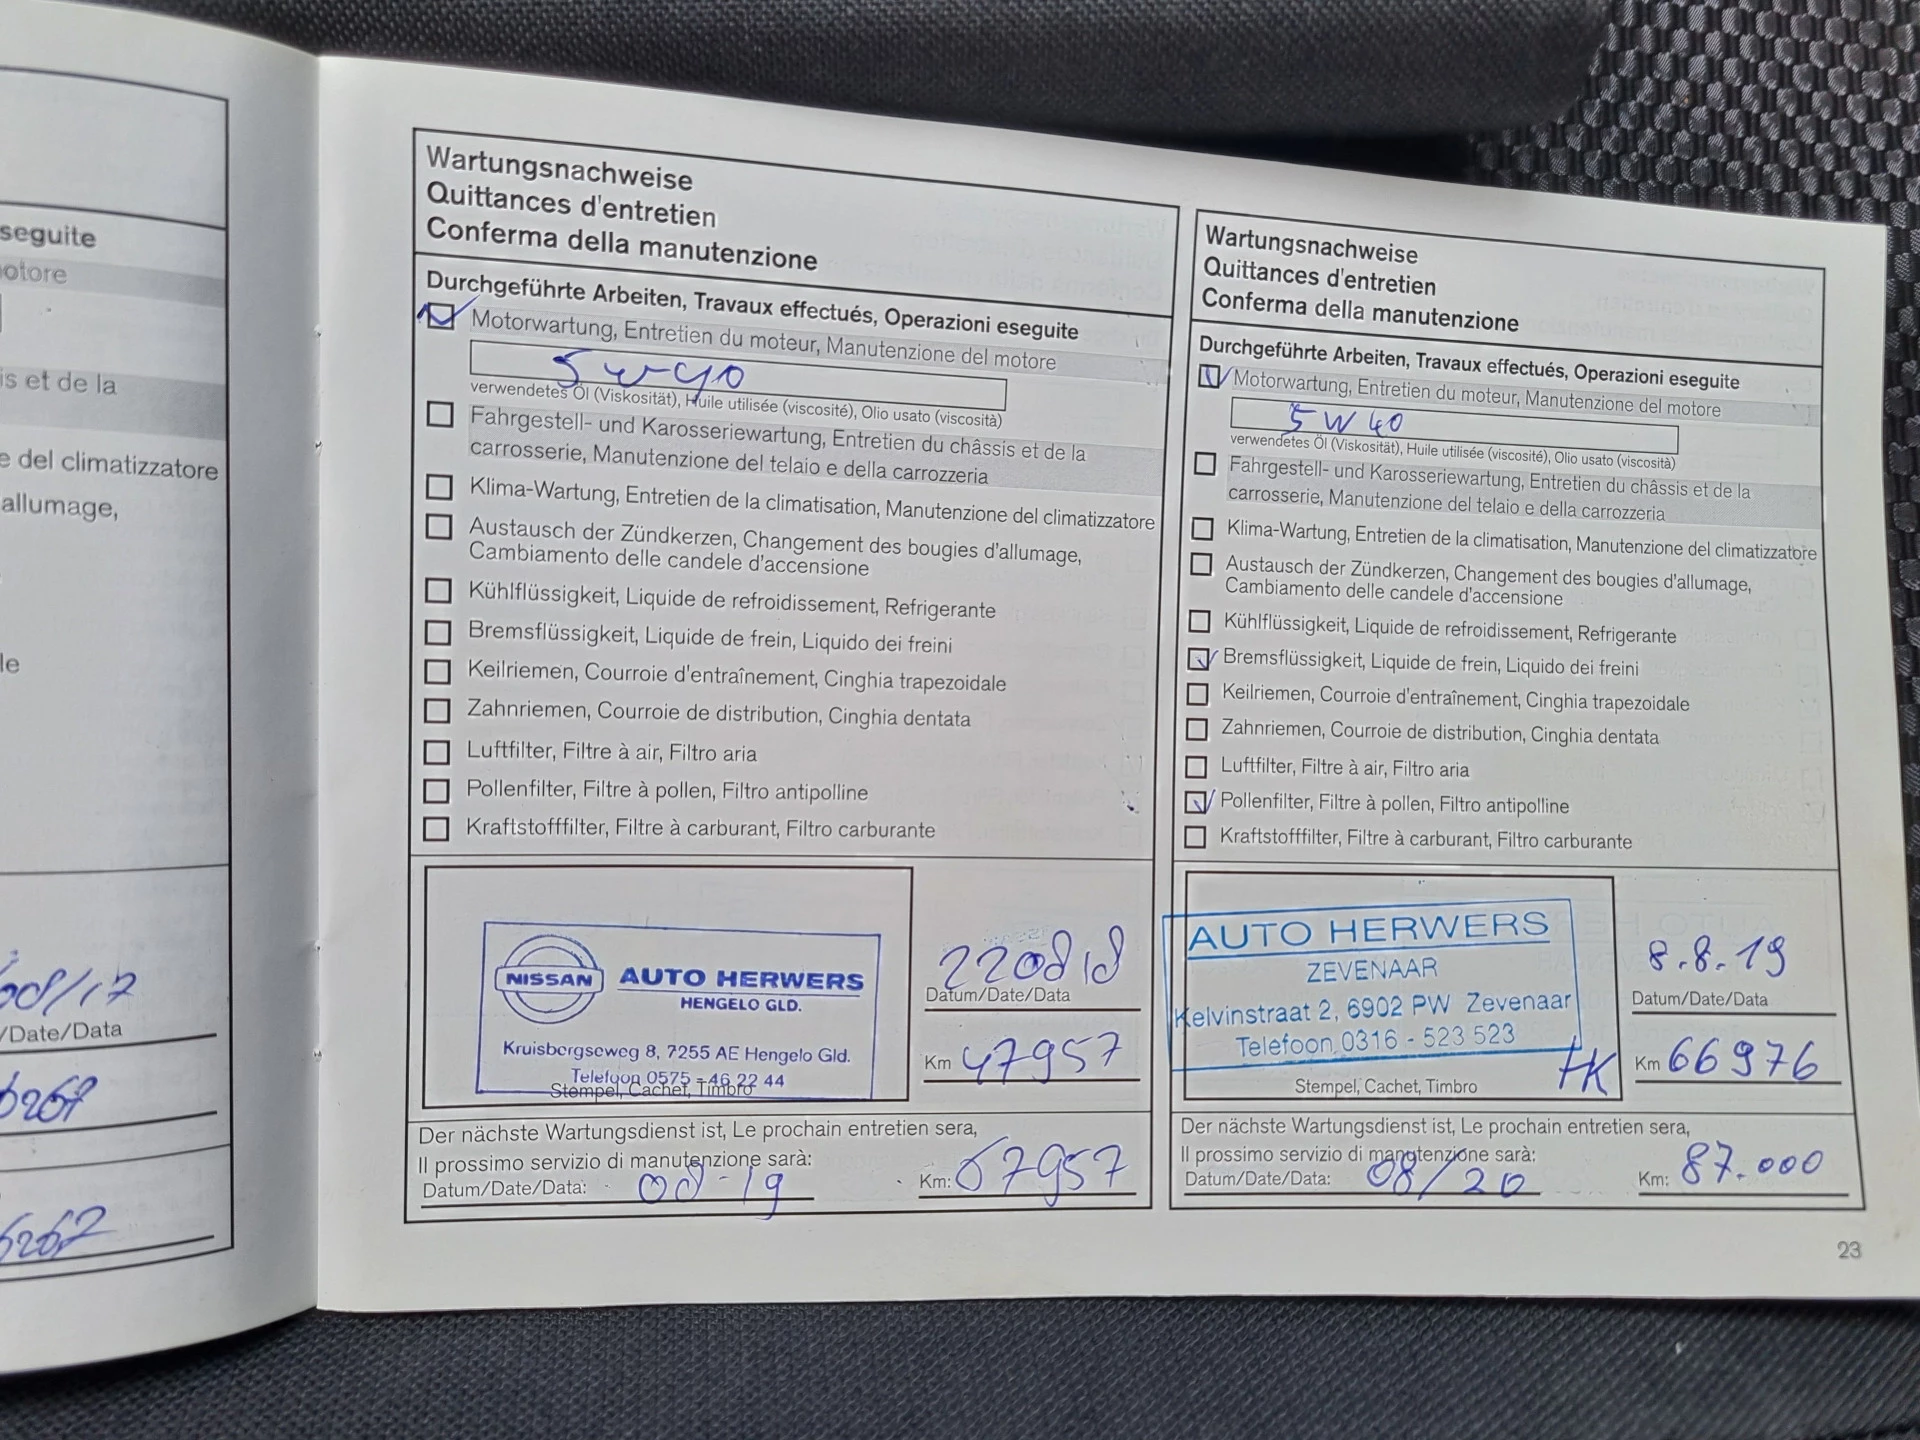 seguite
otore
is et de la
e del climatizzatore
allumage,
le
08/17
/Date/Data
6267
6267
Wartungsnachweise
Quittances d'entretien
Conferma della manutenzione
Durchgeführte Arbeiten, Travaux effectués, Operazioni eseguite
Motorwartung, Entretien du moteur, Manutenzione del motore
5w40
verwendetes Öl (Viskosität), Huile utilisée (viscosité), Olio usato (viscosità)
Fahrgestell- und Karosseriewartung, Entretien du châssis et de la
carrosserie, Manutenzione del telaio e della carrozzeria
Klima-Wartung, Entretien de la climatisation, Manutenzione del climatizzatore
Austausch der Zündkerzen, Changement des bougies d'allumage,
Cambiamento delle candele d'accensione
Kühlflüssigkeit, Liquide de refroidissement, Refrigerante
Bremsflüssigkeit, Liquide de frein, Liquido dei freini
Keilriemen, Courroie d'entraînement, Cinghia trapezoidale
Zahnriemen, Courroie de distribution, Cinghia dentata
Luftfilter, Filtre à air, Filtro aria
Pollenfilter, Filtre à pollen, Filtro antipolline
Kraftstofffilter, Filtre à carburant, Filtro carburante
NISSAN AUTO HERWERS
HENGELO GLD.
Kruisbergseweg 8, 7255 AE Hengelo Gld.
Telefoon 0575 - 46 22 44
Stempel, Cachet, Timbro
220818
Datum/Date/Data
Km 47957
Der nächste Wartungsdienst ist, Le prochain entretien sera,
Il prossimo servizio di manutenzione sarà:
Datum/Date/Data: 08-19 Km: 67957
Wartungsnachweise
Quittances d'entretien
Conferma della manutenzione
Durchgeführte Arbeiten, Travaux effectués, Operazioni eseguite
Motorwartung, Entretien du moteur, Manutenzione del motore
5W40
verwendetes Öl (Viskosität), Huile utilisée (viscosité), Olio usato (viscosità)
Fahrgestell- und Karosseriewartung, Entretien du châssis et de la
carrosserie, Manutenzione del telaio e della carrozzeria
Klima-Wartung, Entretien de la climatisation, Manutenzione del climatizzatore
Austausch der Zündkerzen, Changement des bougies d'allumage,
Cambiamento delle candele d'accensione
Kühlflüssigkeit, Liquide de refroidissement, Refrigerante
Bremsflüssigkeit, Liquide de frein, Liquido dei freini
Keilriemen, Courroie d'entraînement, Cinghia trapezoidale
Zahnriemen, Courroie de distribution, Cinghia dentata
Luftfilter, Filtre à air, Filtro aria
Pollenfilter, Filtre à pollen, Filtro antipolline
Kraftstofffilter, Filtre à carburant, Filtro carburante
AUTO HERWERS
ZEVENAAR
Kelvinstraat 2, 6902 PW Zevenaar
Telefoon 0316 - 523 523
HK
Stempel, Cachet, Timbro
8.8.19
Datum/Date/Data
Km 66976
Der nächste Wartungsdienst ist, Le prochain entretien sera,
Il prossimo servizio di manutenzione sarà:
Datum/Date/Data: 08/20 Km: 87.000
23